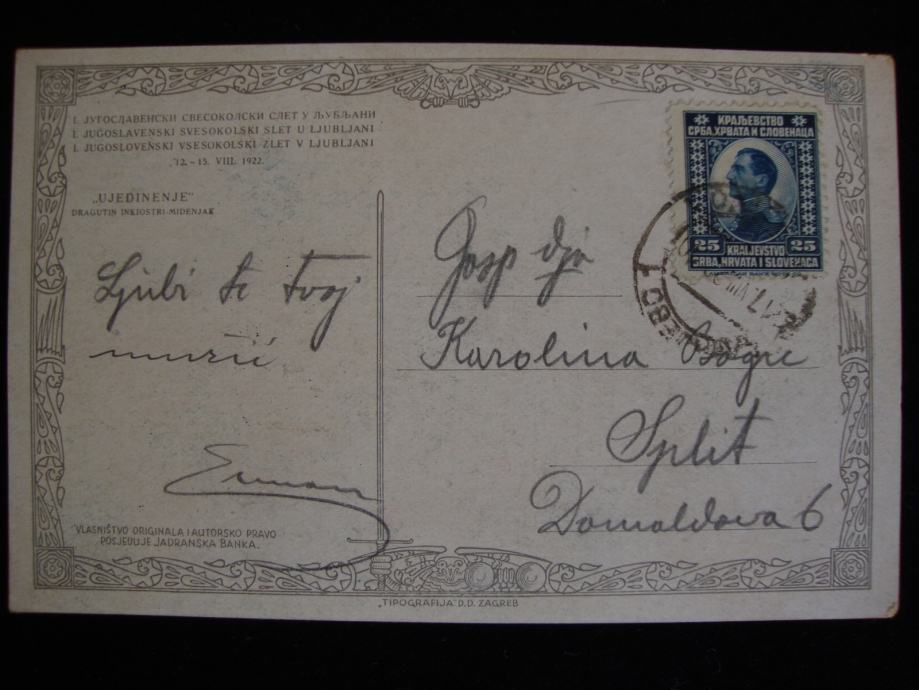 I. ЈУГОСЛАВЕНСКИ СВЕСОКОЛСКИ СЛЕТ У ЉУБЉАНИ
I. JUGOSLAVENSKI SVESOKOLSKI SLET U LJUBLJANI
I. JUGOSLOVENSKI VSESOKOLSKI ZLET V LJUBLJANI
12.–15. VIII. 1922.
„UJEDINENJE"
DRAGUTIN INKIOSTRI-MIDENJAK
Ljubi te tvoj
mužić
КРАЉЕВСТВО
СРБА, ХРВАТА И СЛОВЕНАЦА
25 KRALJEVSTVO 25
SRBA, HRVATA I SLOVENACA
Gospodja
Karolina
Split
Domaldova 6
VLASNIŠTVO ORIGINALA I AUTORSKO PRAVO
POSJEDUJE JADRANSKA BANKA.
„TIPOGRAFIJA" D.D. ZAGREB